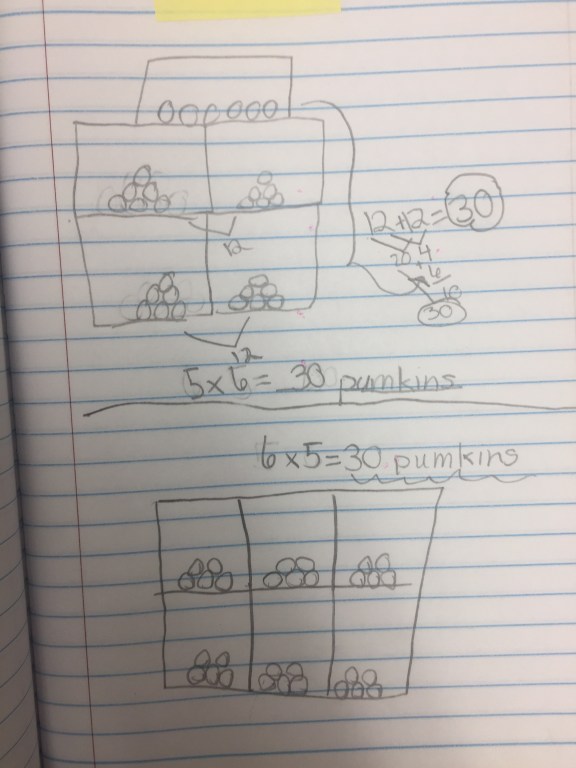 12 + 12 = 30
12
20 4
+ 6
10
30
12
5 x 6 = 30 pumkins
6 x 5 = 30 pumkins